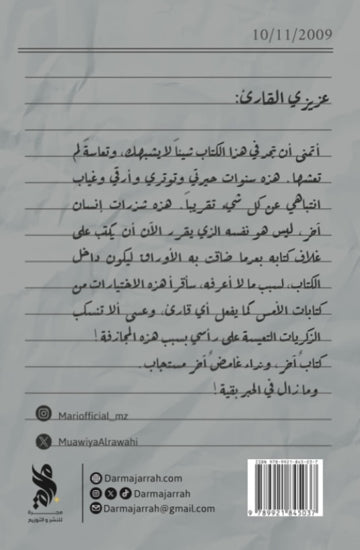 10/11/2009
عزيزي القارئ:
أتمنى أن تجد في هذا الكتاب شيئاً لا يشبهك، وتعاسةً لم
تعشها. هذه سنوات حيرتي وتوتري وأرقي وغياب
انتباهي عن كل شيء تقريباً. هذه شذرات إنسان
آخر، ليس هو نفسه الذي يقرر الآن أن يكتب على
غلاف كتابه بعدما ضاقت به الأوراق ليكون داخل
الكتاب، لسبب ما لا أعرفه، سأقرأ هذه الاختيارات من
كتابات الأمس كما يفعل أي قارئ، وعسى ألا تنسكب
الذكريات التعيسة على رأسي بسبب هذه المجازفة!
كتابٌ آخر، ونداء غامضٌ آخر مستجاب.
وما زال في الحبر بقية!
Mariofficial_mz
MuawiyaAlrawahi
مجرة
للنشر والتوزيع
Darmajarrah.com
Darmajarrah
Darmajarrah@gmail.com
ISBN 978-9921-845-03-7
9 789921 845037